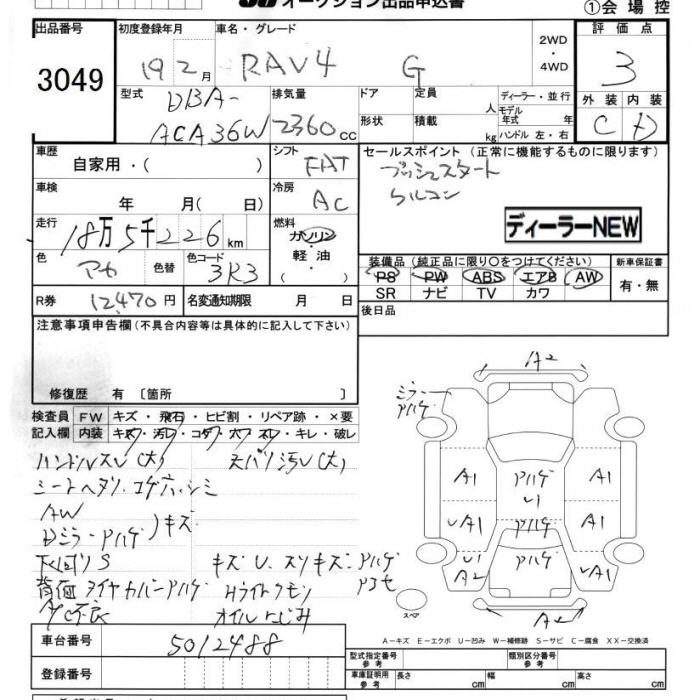 オークション出品申込書
①会場控
出品番号
3049
初度登録年月
19 2月
車名・グレード
RAV4 G
2WD
・
4WD
評価点
3
外装 内装
C D
型式
DBA-
ACA36W
排気量
2360 cc
ドア
形状
定員
人
積載
kg
ディーラー・並行
モデル
年式 年
ハンドル 左・右
車歴
自家用・( )
シフト
FAT
セールスポイント(正常に機能するものに限ります)
プッシュスタート
ディーラーNEW
車検
年 月( 日)
冷房
AC
走行
18万5千226km
燃料
ガソリン
・
軽油
・
( )
色
色替
色コード
3R3
装備品(純正品に限り○をつけてください)
PS PW ABS エアB AW
SR ナビ TV カワ
新車保証書
有・無
R券
12,470円
名変通知期限
月 日
後日品
注意事項申告欄(不具合内容等は具体的に記入して下さい)
修復歴 有〔箇所 〕
検査員
記入欄
FW キズ・飛石・ヒビ割・リペア跡・×要
内装 キズ・汚レ・コゲ・穴・スレ・キレ・破レ
ハンドルスレ(大) 天バリ汚レ(大)
シートヘタリ.コゲ穴.シミ
AW
Dミラーアハゲ
キズ
下回りS
キズU.スリキズ.アハゲ
背面タイヤカバーアハゲ
Hライトクモリ
A/C不良
オイルにじみ
A2
ミラー
アハゲ
A1
アハゲ
U1
A1
UA1
アハゲ
A1
U1
A2
アハゲ
UA1
A2
スペア
A-キズ E-エクボ U-凹み W-補修跡 S-サビ C-腐食 XX-交換済
車台番号
5012488
登録番号
型式指定番号
参考
類別区分番号
参考
車庫証明用
参考
長さ cm
幅 cm
高さ cm